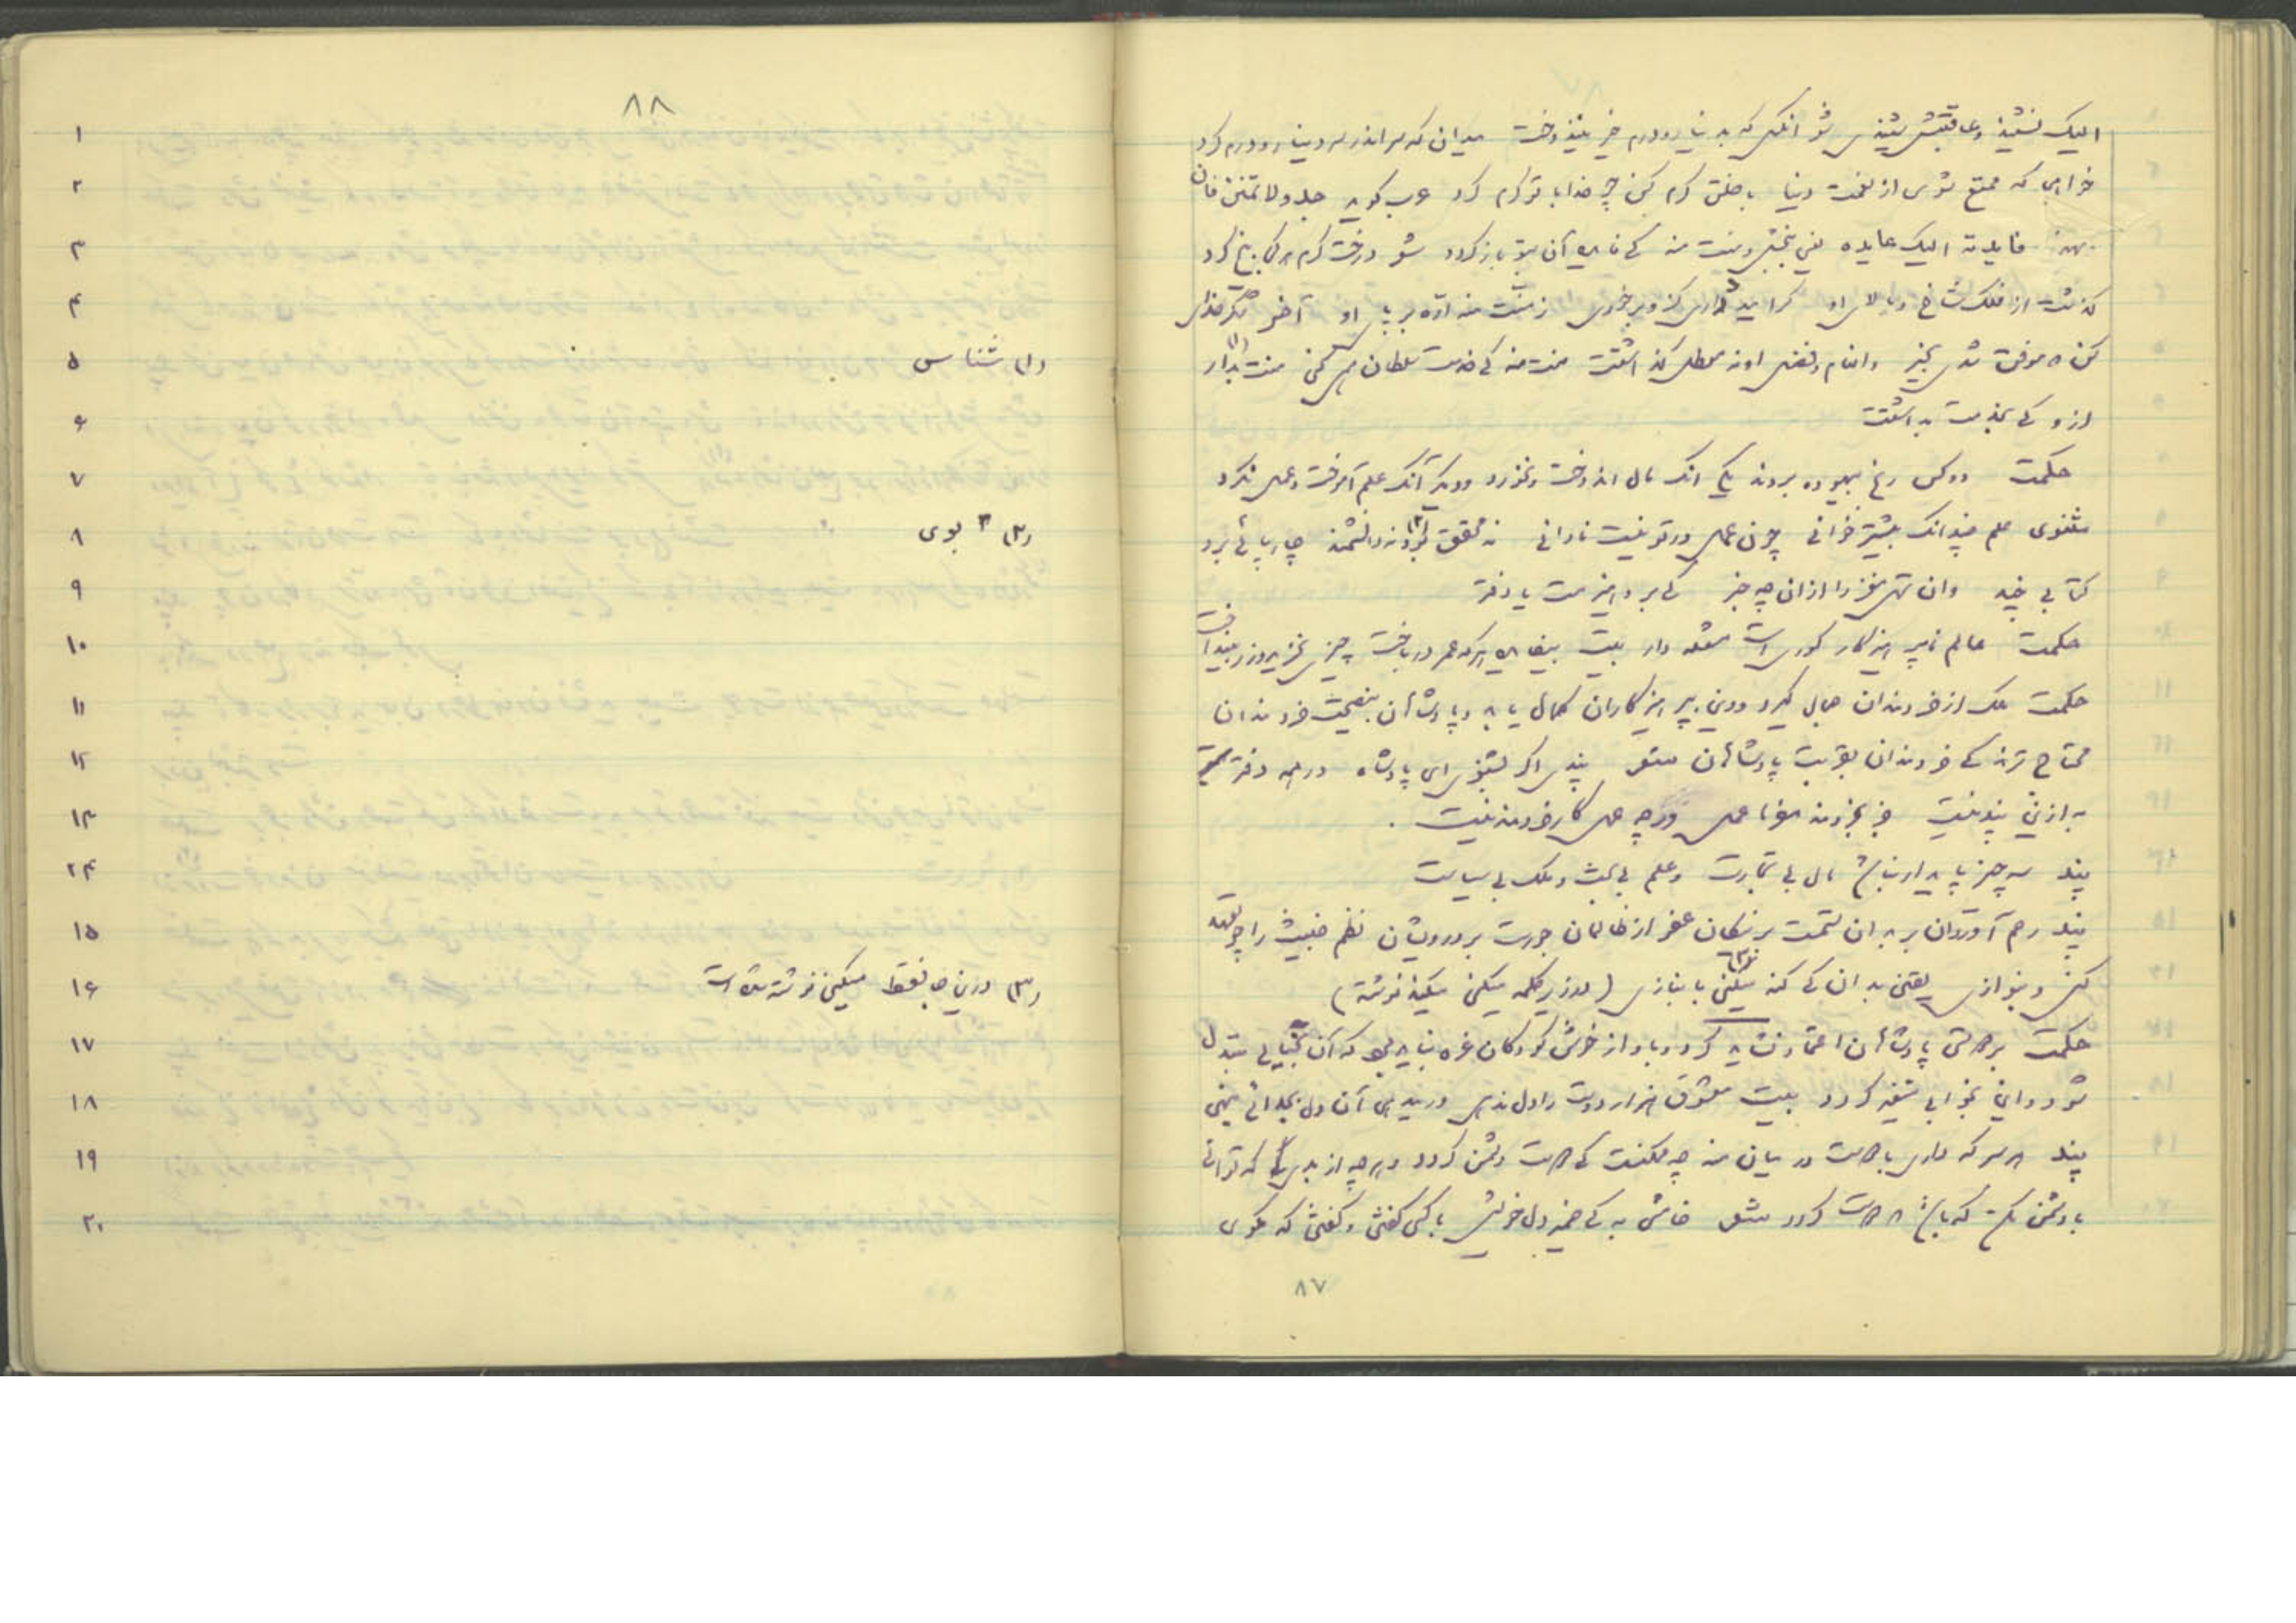 الیک نشنید و عاقبتش شنیدی شعر آنکس که بدینار و درم خیر نیندوخت میدان که سر اندر سر دینار و درم کرد
خواهی که ممتع شوی از نعمت دنیا با خلق کرم کن چو خدا با تو کرم کرد عرب گوید جد ولا تمنن فان
فایدته الیک عایده یعنی ببخش و منت منه کی فایده آن بتو باز گردد شعر درخت کرم هر کجا بیخ کرد
گذشت از فلک شاخ و بالای او گر امیدواری کزو بر خوری ز منت منه اره بر پای او آخر شکر خدای
کن که موفق شدی بخیر و انعام و فضل او نه معطل گذاشتت منت منه کی خدمت سلطان همی کنی منت بدار
ازو کی بخدمت بداشتت
حکمت دو کس رنج بیهوده بردند یکی انک مال اندوخت و نخورد و دیگر آنک علم آموخت و عمل نکرد
مثنوی علم چندانک بیشتر خوانی چون عمل در تو نیست نادانی نه محقق بود نه دانشمند چارپائی برو
کتابی چند وان تهی مغز را از ان چه خبر کی برو هیزمست یا دفتر
حکمت عالم ناپرهیزگار کوری است مشعله دار بیت بیفایده هرکه عمر در باخت چیزی نخرید و زر بینداخت
حکمت ملک از خردمندان جمال گیرد و دین بپرهیزگاران کمال یابد و پادشاهان بنصیحت خردمندان
محتاج ترند کی خردمندان بقربت پادشاهان شعر پندی اگر بشنوی ای پادشاه در همه دفتر
به ازین پند نیست جز بخردمند مفرما عمل ورچه عمل کار خردمند نیست .
پند سه چیز پایدار نباشد مال بی تجارت و علم بی بحث و ملک بی سیاست
پند رحم آوردن بر بدان ستمست بر نیکان عفو از ظالمان جورست بر درویشان نظم خبیث را چو تعهد
کنی و بنوازی یقین بدان کی گنه میکنی بانبازی (در زیر کلمه میکنی میکند نوشته)
حکمت بر دوستی پادشاهان اعتماد نشاید کرد و باواز خوش کودکان غره نباید بود که آن بخیالی مبتدل
شود و این بخوابی متغیر گردد بیت معشوق هزار دوست را دل ندهی ور میدهی آن دل بجدائی بنهی
پند هر سر که داری با دوست در میان منه چه ممکنست کی دوست دشمن گردد و هرچه از بدی که توانی
با دشمن مکن که باشد که دوست گردد شعر خامشی به کی ضمیر دل خویش با کسی گفتن و گفتن که مگوی
۸۷
۸۸
۱
۲
۳
۴
۵ (۱) شناس
۶
۷
۸ (۲) بوی
۹
۱۰
۱۱
۱۲
۱۳
۲۴
۱۵
۱۶ (۳) درین جا فقط میکنی نوشته شده است
۱۷
۱۸
۱۹
۲۰